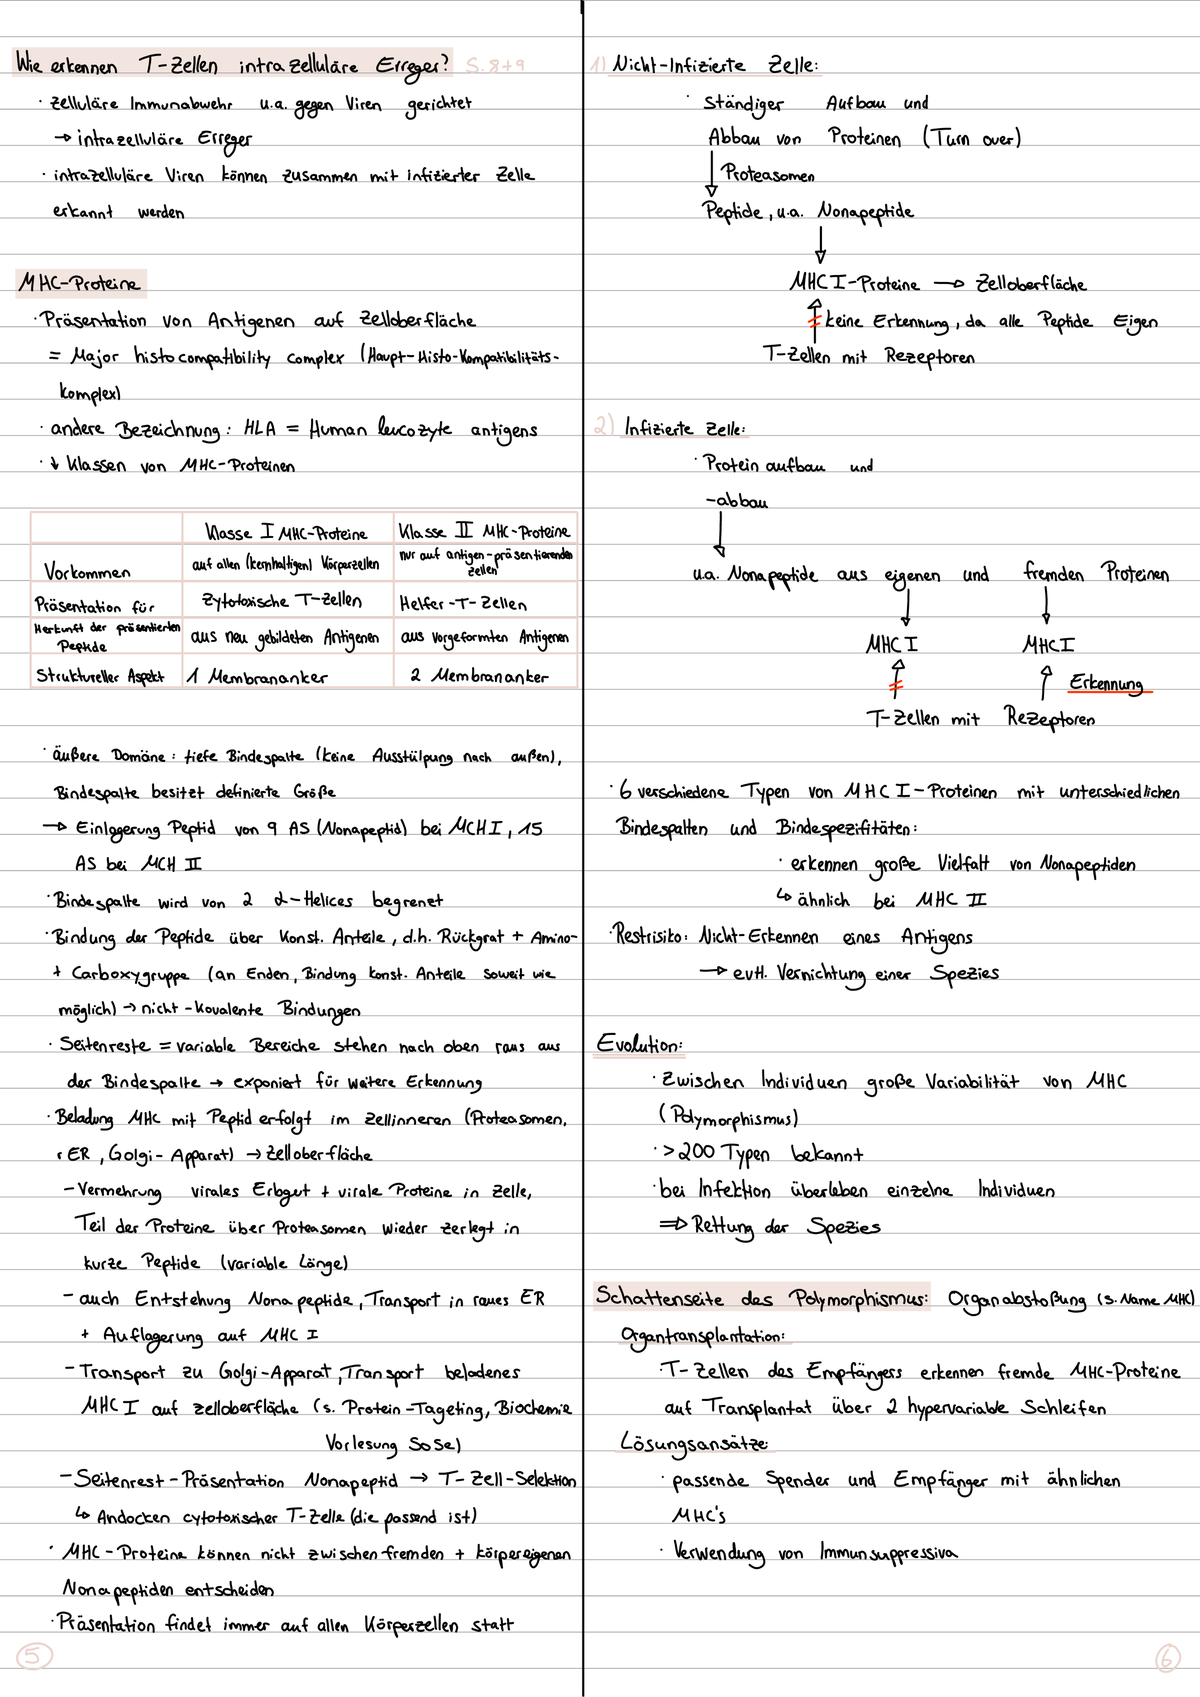 Wie erkennen T-Zellen intrazelluläre Erreger? S. 8+9
· zelluläre Immunabwehr u.a. gegen Viren gerichtet
→ intrazelluläre Erreger
· intrazelluläre Viren können zusammen mit infizierter Zelle
erkannt werden
MHC-Proteine
· Präsentation von Antigenen auf Zelloberfläche
= Major histocompatibility complex (Haupt-Histo-Kompatibilitäts-
komplex)
· andere Bezeichnung: HLA = Human leucozyte antigens
· ↓ Klassen von MHC-Proteinen
Klasse I MHC-Proteine Klasse II MHC-Proteine
Vorkommen auf allen (kernhaltigen) Körperzellen nur auf antigen-präsentierenden Zellen
Präsentation für Zytotoxische T-Zellen Helfer-T-Zellen
Herkunft der präsentierten Peptide aus neu gebildeten Antigenen aus vorgeformten Antigenen
Struktureller Aspekt 1 Membrananker 2 Membrananker
· äußere Domäne: tiefe Bindespalte (keine Ausstülpung nach außen),
Bindespalte besitzt definierte Größe
→ Einlagerung Peptid von 9 AS (Nonapeptid) bei MCH I, 15
AS bei MCH II
· Bindespalte wird von 2 α-Helices begrenet
· Bindung der Peptide über konst. Anteile, d.h. Rückgrat + Amino-
+ Carboxygruppe (an Enden, Bindung konst. Anteile soweit wie
möglich) → nicht-kovalente Bindungen
· Seitenreste = variable Bereiche stehen nach oben raus aus
der Bindespalte → exponiert für weitere Erkennung
· Beladung MHC mit Peptid erfolgt im Zellinneren (Proteasomen,
rER, Golgi-Apparat) → Zelloberfläche
- Vermehrung virales Erbgut + virale Proteine in Zelle,
Teil der Proteine über Proteasomen wieder zerlegt in
kurze Peptide (variable Länge)
- auch Entstehung Nonapeptide, Transport in raues ER
+ Auflagerung auf MHC I
- Transport zu Golgi-Apparat, Transport beladenes
MHC I auf Zelloberfläche (s. Protein-Tageting, Biochemie
Vorlesung SoSe)
- Seitenrest-Präsentation Nonapeptid → T-Zell-Selektion
↳ Andocken cytotoxischer T-Zelle (die passend ist)
· MHC-Proteine können nicht zwischen fremden + körpereigenen
Nonapeptiden entscheiden
· Präsentation findet immer auf allen Körperzellen statt
5
1) Nicht-Infizierte Zelle:
· Ständiger Aufbau und
Abbau von Proteinen (Turn over)
Proteasomen
Peptide, u.a. Nonapeptide
MHC I-Proteine → Zelloberfläche
keine Erkennung, da alle Peptide Eigen
T-Zellen mit Rezeptoren
2) Infizierte Zelle:
· Proteinaufbau und
-abbau
u.a. Nonapeptide aus eigenen und fremden Proteinen
MHC I MHC I
Erkennung
T-Zellen mit Rezeptoren
· 6 verschiedene Typen von MHC I-Proteinen mit unterschiedlichen
Bindespalten und Bindespezifitäten:
· erkennen große Vielfalt von Nonapeptiden
↳ ähnlich bei MHC II
· Restrisiko: Nicht-Erkennen eines Antigens
→ evtl. Vernichtung einer Spezies
Evolution:
· Zwischen Individuen große Variabilität von MHC
(Polymorphismus)
· >200 Typen bekannt
· bei Infektion überleben einzelne Individuen
⇒ Rettung der Spezies
Schattenseite des Polymorphismus: Organabstoßung (s. Name MHC)
Organtransplantation:
· T-Zellen des Empfängers erkennen fremde MHC-Proteine
auf Transplantat über 2 hypervariable Schleifen
Lösungsansätze:
· passende Spender und Empfänger mit ähnlichen
MHC's
· Verwendung von Immunsuppressiva
6